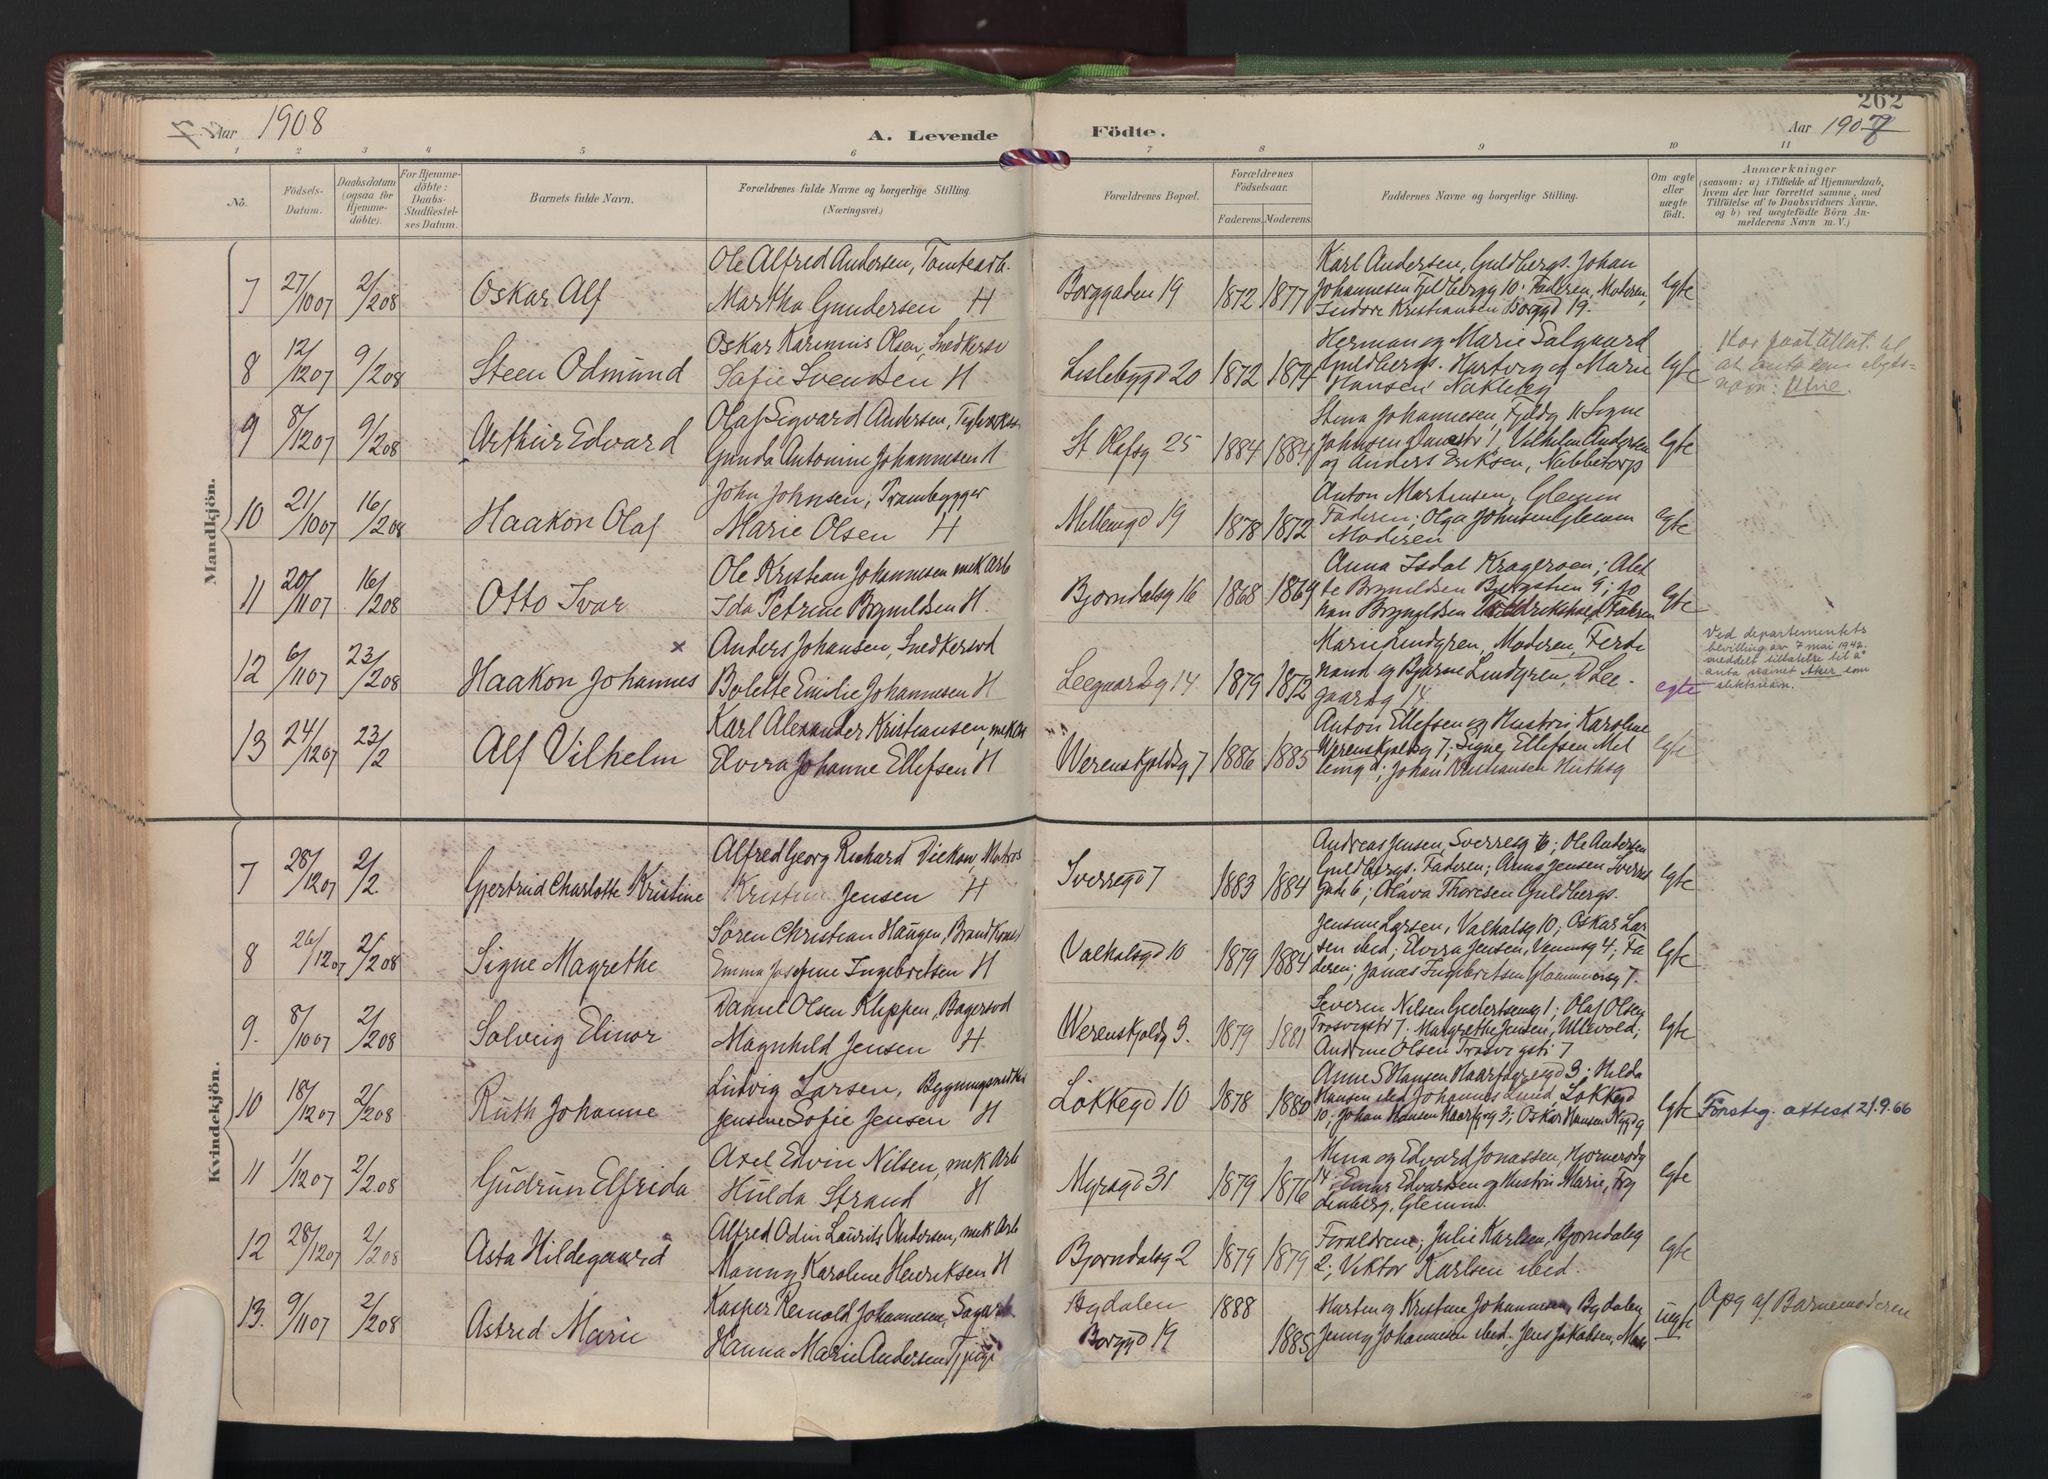 262
Aar 1908
A. Levende
Födte.
Aar 190
1 2 3 4 5 6 7 8 9 10 11
No.
Födsels-Datum.
Daabsdatum (ogsaa for Hjemmedöbte).
For Hjemmedöbte: Daabs-Stadfæstelses Datum.
Barnets fulde Navn.
Forældrenes fulde Navne og borgerlige Stilling.
(Næringsvei.)
Forældrenes Bopæl.
Forældrenes Födselsaar.
Faderens. Moderens.
Faddernes Navne og borgerlige Stilling.
Om ægte eller uægte födt.
Anmærkninger
(saasom: a) i Tilfælde af Hjemmedaab, hvem der har forrettet samme, med Tilföielse af to Daabsvidners Navne, og b) ved uegtefödte Börn Anmelderens Navn m. V.)
Mandkjön.
7 27/1007 2/208 Oskar Alf
Ole Alfred Andersen, Tomtearb.
Martha Gundersen H
Borggaden 19 1872 1877
Karl Andersen, Guldbergs. Johan
Johannesen Fjeldbergg 10. Faderen, Moderen,
Kristiansen Borggd 19.
Egte
8 12/1207 9/208 Steen Odmund
Oskar Karenius Olsen, Snedkersv
Sofie Svendsen H
Lislebygd 20 1872 1874
Herman og Marie Salgaard
Guldbergs. Hartvig og Marie
Hansen Nakleby
Egte
navn: Utne.
9 8/1207 9/208 Arthur Edvard
Olaf Sigvard Andersen, Teglverks
Gunda Antonine Johannesen H
St Olafsg 25 1884 1884
Stina Johannesen, Fjeldg 11 Signe
Johnsen 1, Vilhelm Andersen
og Anders Eriksen, Nabbetorp
Egte
10 21/1007 16/208 Haakon Olaf
John Johnsen, Prambygger
Marie Olsen H
Mellemgd 19 1878 1872
Anton Martinsen, Glemm
Faderen; Olga Johnsen Glemm
Moderen
egte
11 20/1107 16/208 Otto Ivar
Ole Kristian Johannesen mek Arb
Ida Petrine Brynildsen H.
Bjorndalsg 16 1868 1869
Anna Isdal Krageroen; Alet
te Brynildsen Bjergstien 9; Jo
han Brynyldsen Fredrikshald, Faderen
Egte
12 6/1107 23/208 Haakon Johannes
× Anders Johansen, Snedkersvd
Bolette Emilie Johannesen H
Leegaardsg 14 1879 1872
Marie Lindgren, Moderen, Ferdi
nand og Bjarne Lindgren, Lee-
gaardsg 14
egte
Ved departementets
bevilling av 7 mai 1942
meddelt tillatelse til å
anta navnet Aker som
slektsnavn.
13 24/1207 23/2 Alf Vilhelm
Karl Alexander Kristiansen, mek Arb
Elvira Johanne Ellefsen H
Werenskjoldsg 7 1886 1885
Anton Ellefsen og Hustru Karoline
Werenskjoldsg 7; Signe Ellefsen Mel
lemgd; Johan Kristiansen Huthsg
Egte
Kvindekjön.
7 28/1207 2/2 Gjertrud Charlotte Kristine
Alfred Georg Richard Dickow, Matros
Kristine Jensen H
Sverregd 7 1883 1884
Andreas Jensen, Sverresg 6; Ole Andersen
Guldbergs. Faderen; Anna Jensen Sverres
gade 6; Olava Thoresen Guldbergs.
Egte
8 26/1207 2/208 Signe Magrethe
Sören Christian Haugen, Brandkonst
Emma Josefine Ingebretsen H
Valhalsgd 10 1879 1884
Jensine Larsen, Valhalsg 10; Oskar Lar
sen ibid; Elvira Jensen, Venusg 4; Fa
deren; James Ingebretsen Glommensg 7.
Egte
9. 8/1007 2/208 Solveig Elinor
Daniel Olsen Klippen, Bagersvd
Magnhild Jensen H
Werenskjoldsg 3. 1879 1881
Severin Nilsen Gudertsensg 1; Olaf Olsen
Trosvigstr 7. Margrethe Jensen, Ullevold;
Andrine Olsen Trosvigst 7
Egte
10 18/1207 2/208 Ruth Johanne
Ludvig Larsen, Bygningssnedker
Jensine Sofie Jensen H
Lökkegd 10 1878 1880
Anne S Hansen Haarfagresgd 3; Hilda
Hansen ibid Johannes Lund, Lökkegd
10; Johan Hansen Haarfgrg 3; Oskar Hansen Nygdg
Egte
Forsteg. attest 21.9.66
11 1/1207 2/2.08 Gudrun Elfrida
Axel Edvin Nilsen, mek Arb
Hulda Strand H
Myragd 31 1879 1876
Mina og Edvard Jonassen, Hjornerödg
14 Einar Edvardsen og Hustru Marie, Try
denberg, Glemm.
Egte
12 28/1207 2/208 Asta Hildegaard
Alfred Odin Laurits Andersen, mek Arb
Manny Karoline Henriksen H
Bjorndalsg 2 1879 1879
Foraldrene; Julie Karlsen, Bjorndalsg
2; Viktor Karlsen ibid.
Egte
13. 9/1107 2/208 Astrid Marie
Kasper Reinold Johannesen, Sagarb
Hanna Marie Andersen
Bydalen 1888
Borggd 19 1885
Marten og Kristine Johannesen, Bydalen
Jenny Johannesen ibid, Jens Jakobsen,
uegte
Opg af Barnemoderen